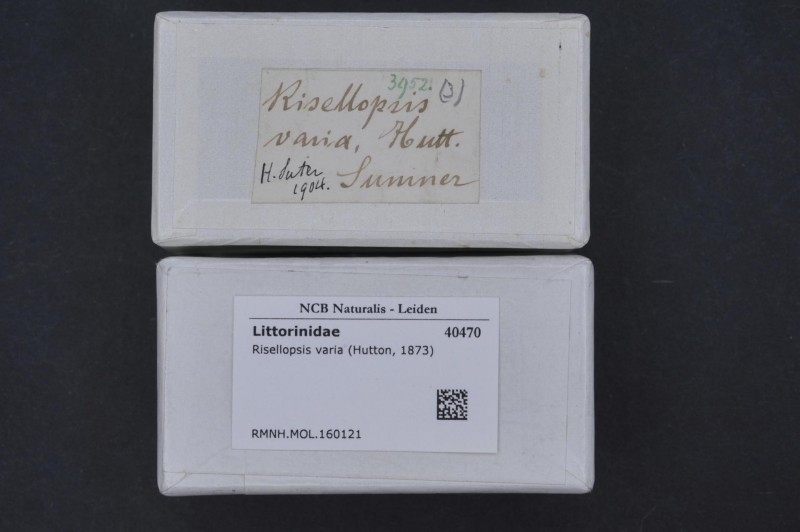 3952. (3)
Risellopsis
varia, Hutt.
H. Suter Sumner
1904.
NCB Naturalis - Leiden
Littorinidae 40470
Risellopsis varia (Hutton, 1873)
RMNH.MOL.160121